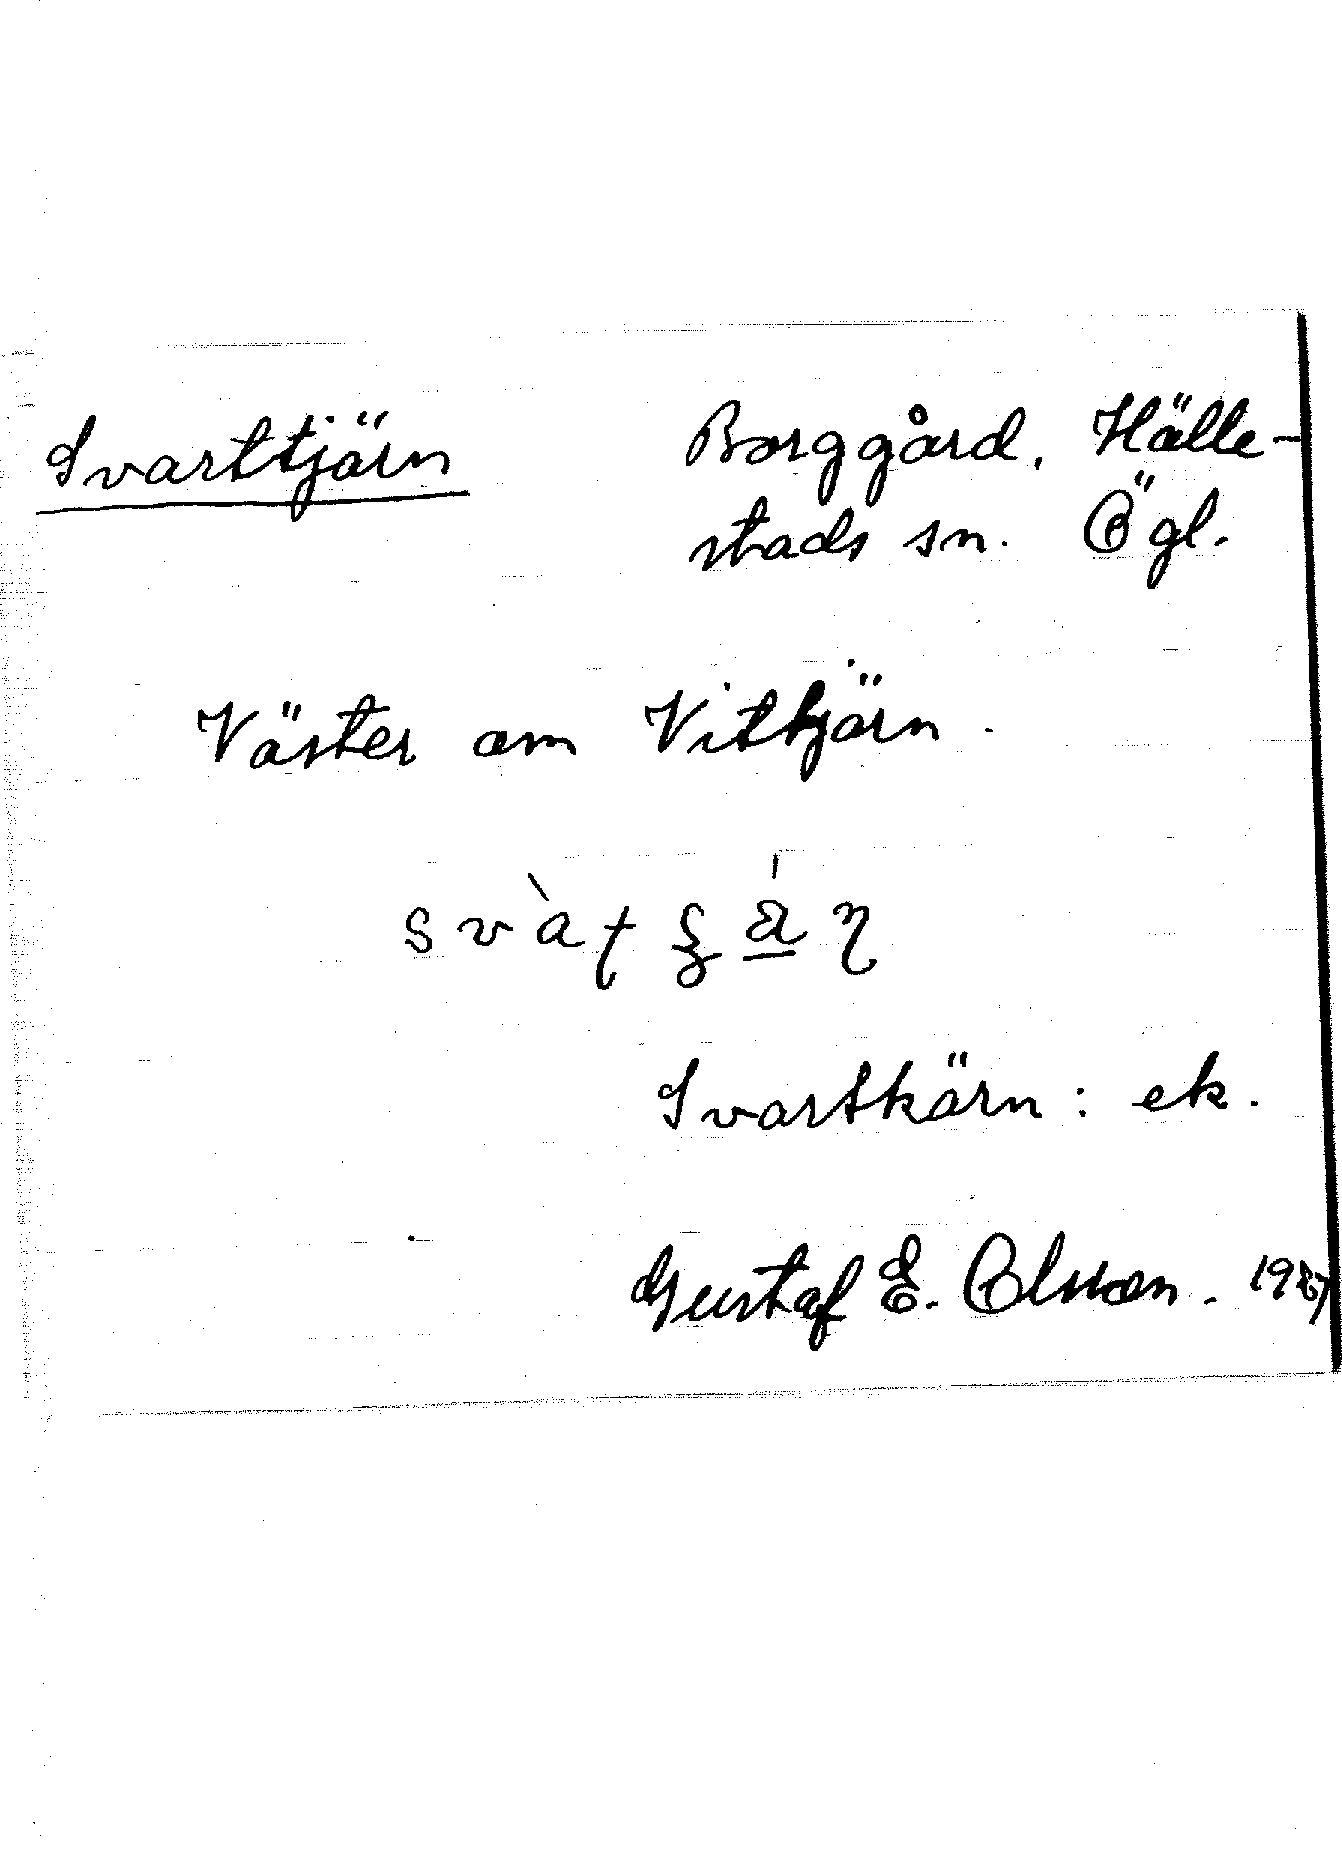 Svarttjärn
Borggård, Hälle-
stads sn. Ögl.
Väster om Vittjärn.
Svartkärn: ek.
Gustaf E. Olsson.